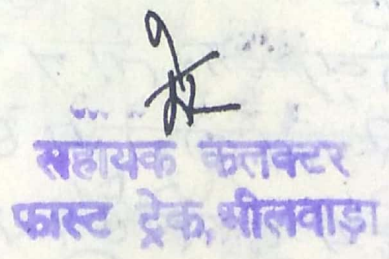 सहायक कलक्टर
फास्ट ट्रेक, भीलवाड़ा